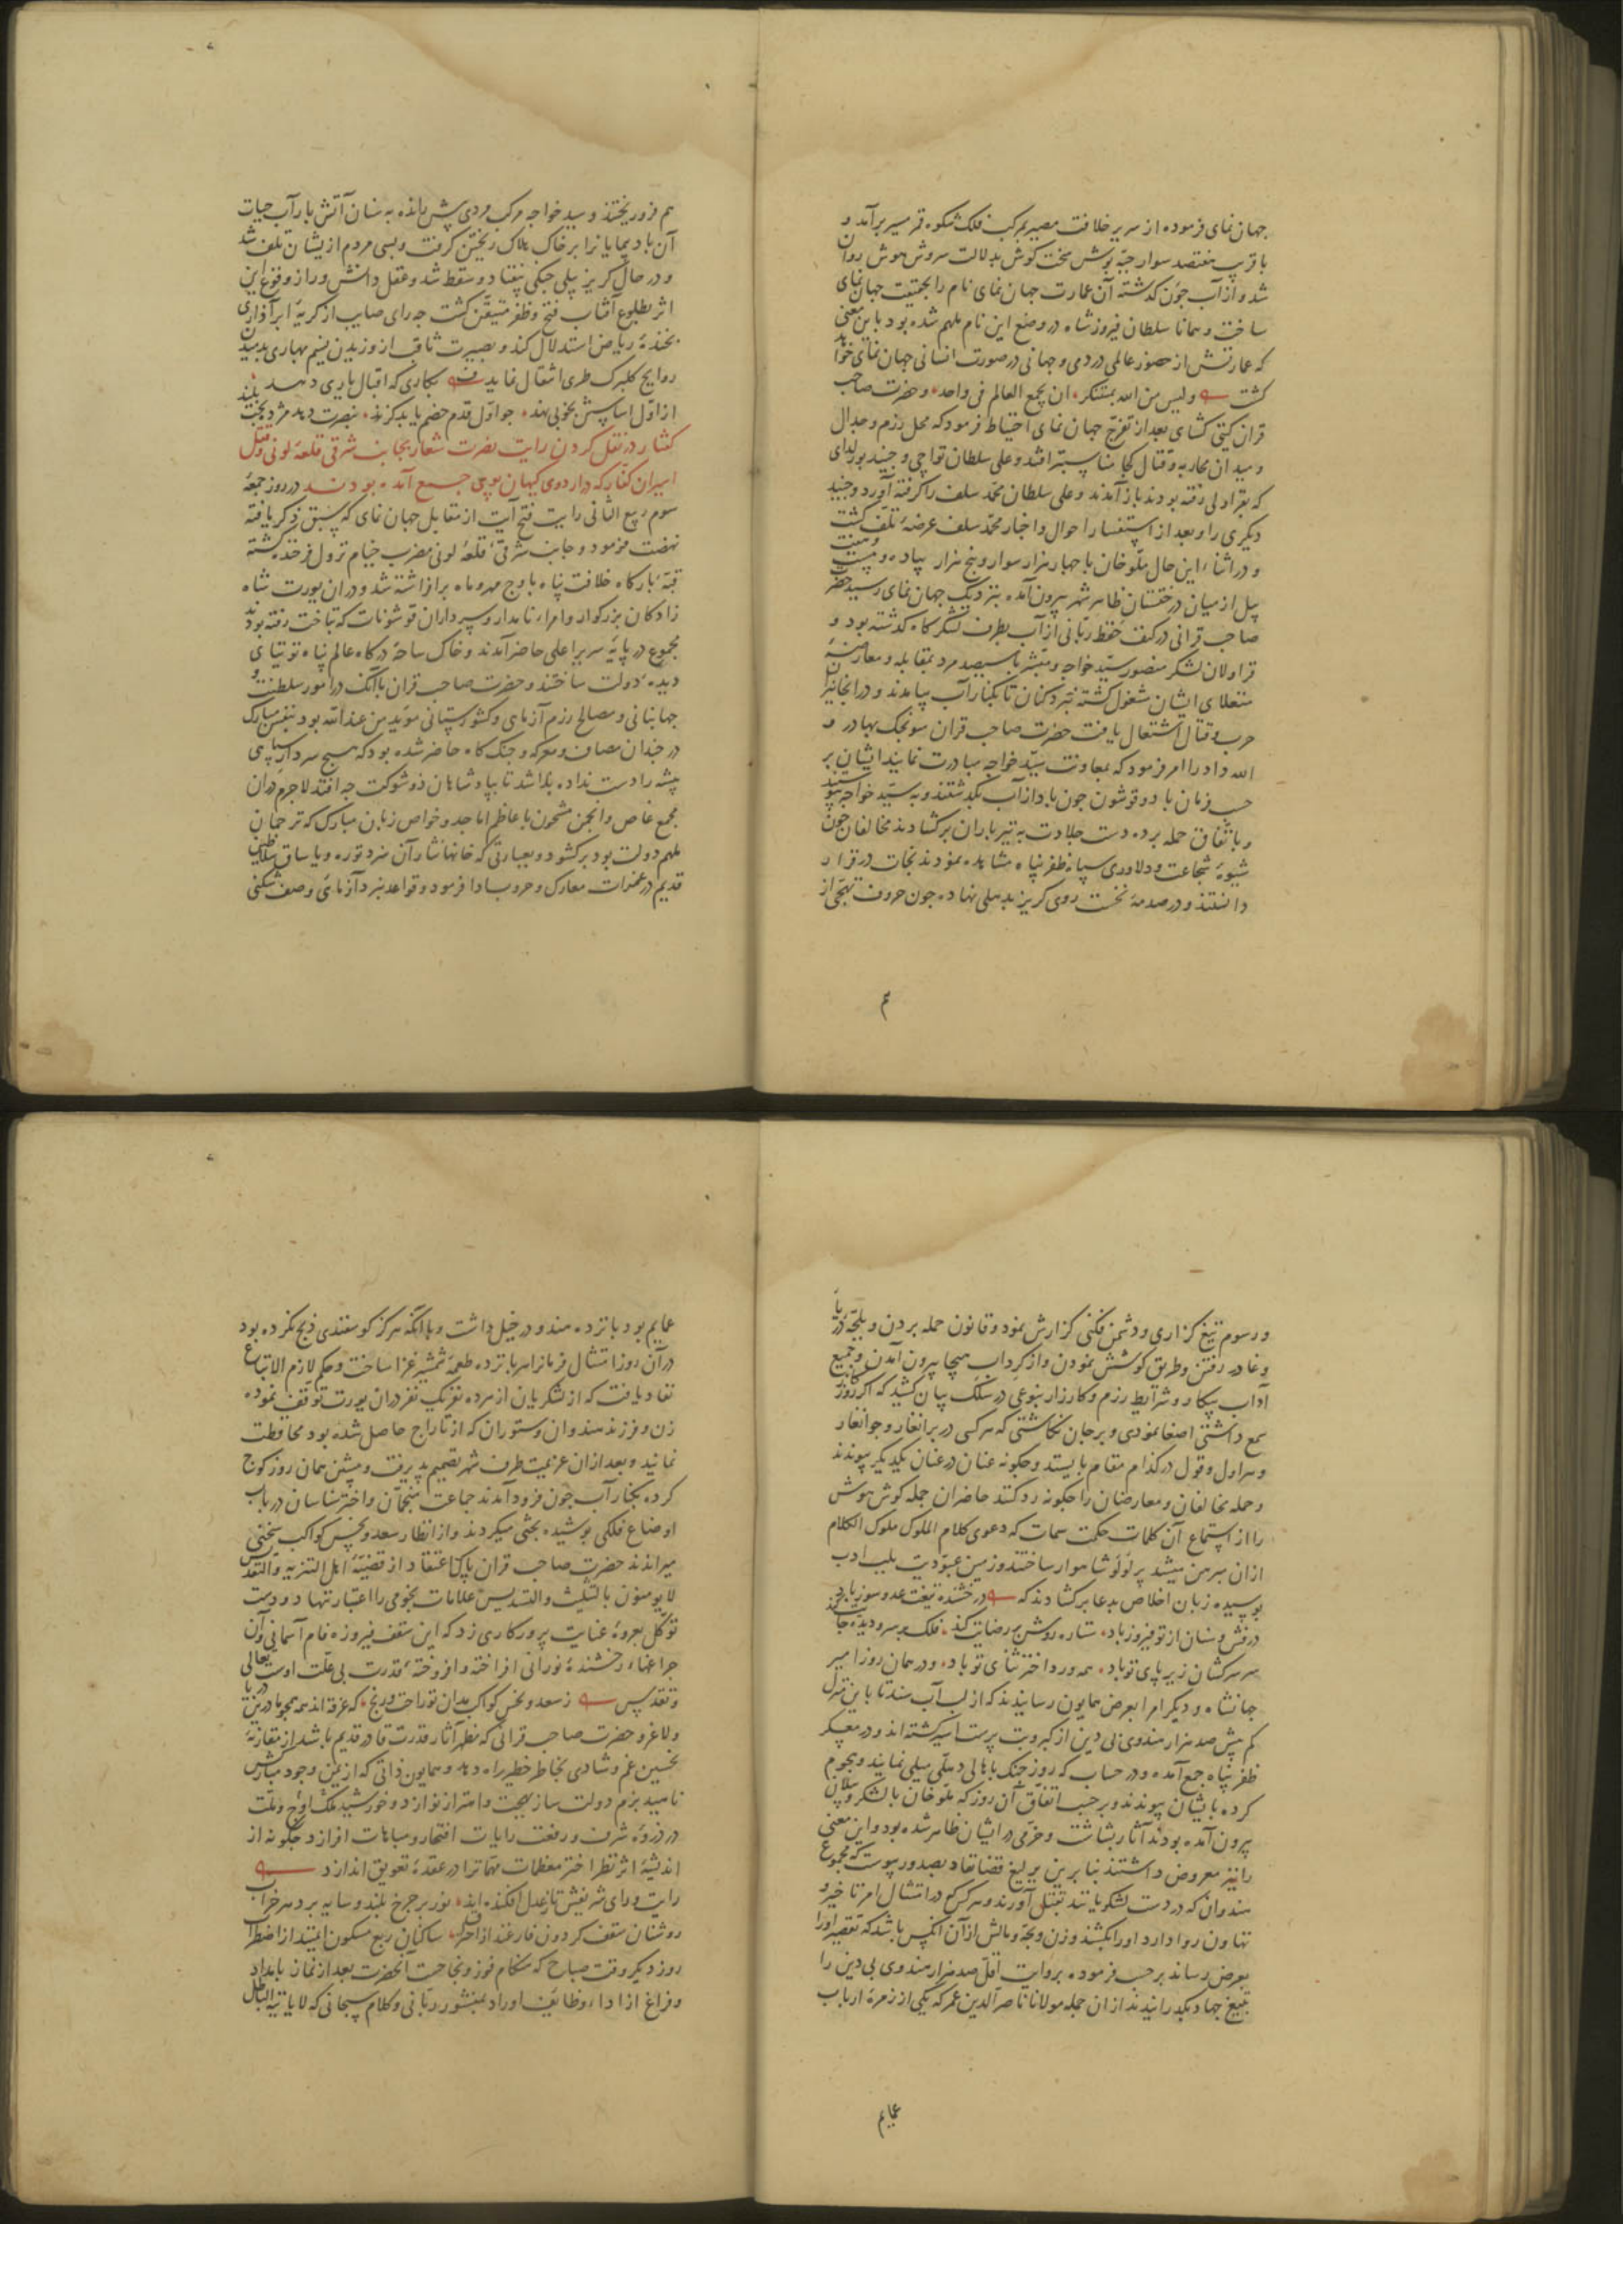 جهان نمای فرموده از سریر خلافت مصیر بمرکب فلک شکوه قمر مسیر برآمد و
با قریب هفتصد سوار جبّه پوش سخت کوش بدلالت سروش هوش روان
شد و از آب جون کدشته آن عمارت جهان نمای نام را بحقیقت جهان نمای
ساخت و همانا سلطان فیروزشاه در وضع این نام ملهم شده بود باین معنی
که عمارتش از حضور عالمی در دمی و جهانی در صورت انسانی جهان نمای خواهد
کشت ولیس من الله بمستنکر ان یجمع العالم فی واحد و حضرت صاحب
قران کیتی کشای بعد از تفرّج جهان نمای احتیاط فرمود که محل رزم و جدال
و میدان محاربه و قتال کجا مناسبتر افتد و علی سلطان تواجی و جنید بورلدای
که بقراولی رفته بودند باز آمدند و علی سلطان محمّد سلف را کرفته آورد و جنید
دیکری را و بعد از استفسار احوال و اخبار محمّد سلف عرضهٔ تلف کشت
و در اثنای این حال ملّو خان با جهار هزار سوار و پنج هزار پیاده و بیست و هفت
پیل از میان درختستان ظاهر شهر بیرون آمده بنزدیک جهان نمای رسید حضرت
صاحب قرانی در کنف حفظ ربّانی از آب بطرف لشکرکاه کدشته بود و
قراولان لشکر منصور سیّد خواجه و مبشّر با سیصد مرد بمقابله و معارضهٔ
منغلای ایشان مشغول کشته نبرد کنان تا بکنار آب بیامدند و در آنجا نیران
حرب و قتال اشتعال یافت حضرت صاحب قران سونجک بهادر و
الله داد را امر فرمود که بمعاونت سیّد خواجه مبادرت نمایند ایشان بر
حسب فرمان با دو قوشون جون باد از آب بکدشتند و به سیّد خواجه پیوستند
و باتفاق حمله برده دست جلادت به تیرباران برکشادند مخالفان جون
شیوهٔ شجاعت و دلاوری سپاه ظفرپناه مشاهده نمودند نجات در فرار
دانستند و در صدمهٔ نخست روی کریز بدهلی نهاده جون حروف تهجّی از
هم
هم فرو ریختند و سید خواجه مرکب مردی پیش رانده به سنان آتش بار آب حیات
آن بادپیمایانرا بر خاک هلاک ریختن کرفت و بسی مردم از یشان تلف شد
و در حال کریز پیلی جنکی بیفتاد و سقط شد و عقل دانش ور از وقوع این
اثر بطلوع آفتاب فتح و ظفر متیقّن کشت جه رای صایب از کریهٔ ابر آذاری
بخندهٔ ریاض استدلال کند و بصیرت ثاقب از وزیدن نسیم بهاری بدمیدن
روایح کلبرک طری انتقال نماید بکاری که اقبال یاری دهد بلند
از اوّل اساسش بخوبی نهد جو اوّل قدم خصم یابد کزند بنصرت دهد مژده بخت
کفتار در نقل کردن رایت نصرت شعار بجانب شرقی قلعهٔ لونی و قتل
اسیران کفّار که در اردوی کیهان پوی جمع آمده بودند در روز جمعهٔ
سوم ربیع الثانی رایت فتح آیت از مقابل جهان نمای که سبق ذکر یافته
نهضت فرمود و جانب شرقی قلعهٔ لونی مضرب خیام نزول فرخنده کشته
قبّهٔ بارکاه خلافت پناه باوج مهر و ماه برافراشته شد و در ان یورت شاه
زادکان بزرکوار و امراء نامدار و سرداران قوشونات که بتاخت رفته بودند
مجموع در پایهٔ سریر اعلی حاضر آمدند و خاک ساحهٔ درکاه عالم پناه توتیای
دیدهٔ دولت ساختند و حضرت صاحب قران با آنک در امور سلطنت و
جهانبانی و مصالح رزم آزمای و کشورستانی مؤید من عند الله بود بنفس مبارک
در جندان مصاف و معرکه و جنک کاه حاضر شده بود که هیچ سردار سپاهی
پیشه را دست نداده باشد تا بپادشاهان ذوشوکت جه افتد لاجرم در ان
مجمع غاص و انجمن مشحون باعاظم اماجد و خواص زبان مبارک که ترجمان
ملهم دولت بود برکشود و بعبارتی که خانها نثار آن سزد توره و یاساق سلاطین
قدیم در غمرات معارک و حروب ادا فرمود و قواعد نبرد آزمای و صف شکنی
و رسوم تیغ کزاری و دشمن فکنی کزارش نمود و قانون حمله بردن و بلجّهٔ دریا
وغا در رفتن و طریق کوشش نمودن و از کرداب هیجا بیرون آمدن و جمیع
آداب پیکار و شرایط رزم و کارزار بنوعی در سلک بیان کشید که اکر روز
سمع داشتی اصغا نمودی و بر جان نکاشتی که هر کسی در برانغار و جوانغار
و هراول و قول در کدام مقام بایستد و جکونه عنان در عنان یکدیکر پیوندند
و حمله مخالفان و معارضان را جکونه رد کنند حاضران جمله کوش هوش
را از استماع آن کلمات حکمت سمات که دعوی کلام الملوک ملوک الکلام
ازان مبرهن میشد پر لؤلؤ شاهوار ساختند و زمین عبودیت بلب ادب
بوسیده زبان اخلاص بدعا برکشادند که درخشنده تیغت عدو سوز باد
درفش و سنان از تو فیروز باد ستاره روشن رضایت کند فلک بر سر و دیده جایت کند
سر سرکشان زیر پای تو باد همه ورد اختر ثنای تو باد و در همان روز امیر
جهانشاه و دیکر امرا بعرض همایون رسانیدند که از لب آب سند تا باین منزل
کم بیش صد هزار هندوی بی دین از کبر و بت پرست اسیر کشته اند و در معسکر
ظفر پناه جمع آمده و در حساب که روز جنک باهالی دهلی میلی نمایند و هجوم
کرده بایشان پیوندند و بر حسب اتفاق آن روز که ملّو خان با لشکر و پیلان
بیرون آمده بودند آثار بشاشت و خرّمی در ایشان ظاهر شده بود و این معنی
را نیز معروض داشتند بنا برین یرلیغ قضا نفاد بصدور پیوست که مجموع
هندوان که در دست لشکریانند بقتل آورند و هر کس که در امتثال امر تاخیر و
تهاون روا دارد او را بکشند و زن و بچّه و مالش از آن انکس باشد که تقصیر او را
بعرض رساند بر حسب فرموده بروایت اقل صد هزار هندوی بی دین را
بتیغ جهاد بکذرانیدند از ان جمله مولانا ناصر الدین عمر که یکی از زمرهٔ ارباب
عمایم
عمایم بود پانزده هندو در خیل داشت و با انکه هرکز کوسفندی ذبح نکرده بود
در آن روز امتثال فرمانرا هر پانزده طعمهٔ شمشیر غزا ساخت و حکم لازم الاتباع
نفاد یافت که از لشکریان از هر ده نفر یک نفر دران یورت توقف نموده
زن و فرزند هندوان و ستوران که از تاراج حاصل شده بود محافظت
نمانید و بعد از ان عزیمت طرف شهر تصمیم پذیرفت و پیشین همان روز کوج
کرده بکنار آب جون فرود آمدند جماعت منجّمان و اخترشناسان در باب
اوضاع فلکی پوشیده بحثی میکردند و از انظار سعد و نحس کواکب سخنی
میراندند حضرت صاحب قران پاک اعتقاد از قضیّهٔ اهل التنزیه و التقدیس
لا یومنون بالتثلیث و التسدیس علامات نجومی را اعتبار ننهاد و دست
توکّل بعروهٔ عنایت پروردکاری زد که این سقف فیروزه فام آسمانی و آن
جراغهاء رخشندهٔ نورانی افراخته و افروختهٔ قدرت بی علّت اوست تعالی
و تقدیس ز سعد و نحس کواکب مدان تو راحت و رنج که غرقه اند همه همجو ما درین دریا
ولا غرو حضرت صاحب قرانی که مظهر آثار قدرت قادر قدیم باشد از مقارنهٔ
نحسین غم و شادی بخاطر خطیر راه دهد و همایون ذاتی که از یمن وجود مبارکش
ناهید بزم دولت ساز بهجت و اهتزاز نوازد و خورشید ملک اوج و ملّت
در ذروهٔ شرف و رفعت رایات افتخار و مباهات افرازد جکونه از
اندیشهٔ اثر نظر اختر معظمات مهمّاترا در عقدهٔ تعویق اندازد
رایت و رای شریفش تا ز عدل افکنده اند نور بر جرخ بلند و سایه بر دهر خراب
روشنان سقف کردون فارغند از احتراق ساکنان ربع مسکون ایمنند از اضطراب
روز دیکر وقت صباح که هنکام فوز و نجاحست آنحضرت بعد از نماز بامداد
و فراغ از اداء وظایف اوراد بمنشور ربّانی و کلام سبحانی که لا یاتیه الباطل